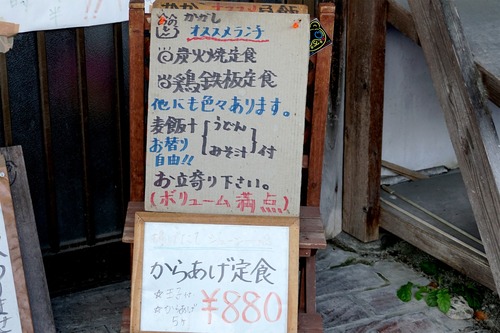 かかし
オススメランチ
炭火焼定食
鶏鉄板定食
他にも色々あります。
麦飯+
お替り
自由!!
うどん
みそ汁
付
お立寄り下さい。
(ボリューム満点)
からあげ定食
☆玉子付
☆からあげ
5ヶ
¥880